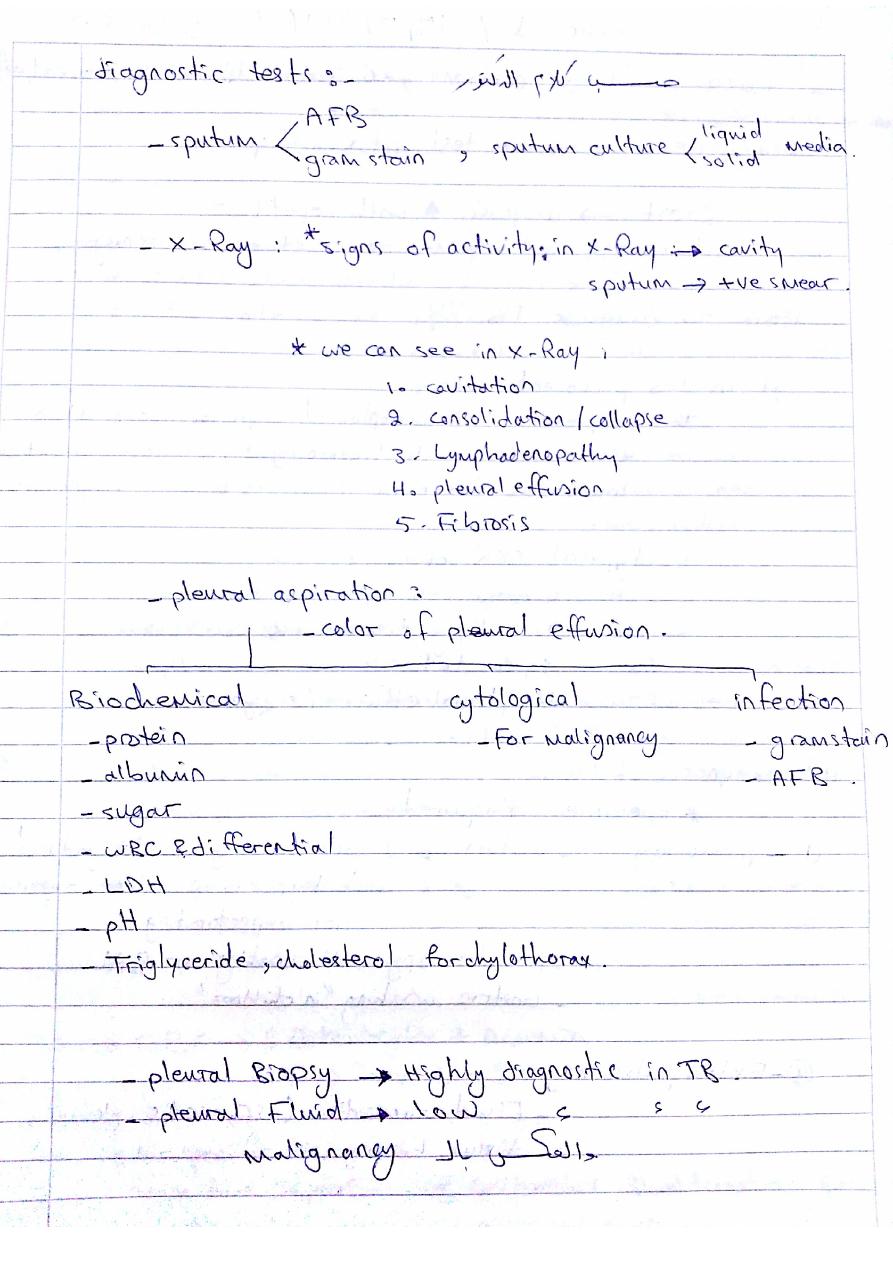 diagnostic tests :- حسب كلام الدكتور
- sputum < AFB
gram stain , sputum culture < liquid
solid media.
- X-Ray : *signs of activity: in X-Ray :→ cavity
sputum → +ve smear.
* we can see in X-Ray :
1. cavitation
2. consolidation / collapse
3. Lymphadenopathy
4. pleural effusion
5. Fibrosis
- pleural aspiration :
- color of pleural effusion.
Biochemical
- protein
- albumin
- sugar
- WBC & differential
- LDH
- pH
- Triglyceride , cholesterol for chylothorax.
cytological
- For Malignancy
infection
- gramstain
- AFB .
- pleural Biopsy → Highly diagnostic in TB .
- pleural Fluid → low ς ς ς
والعكس بالـ Malignancy